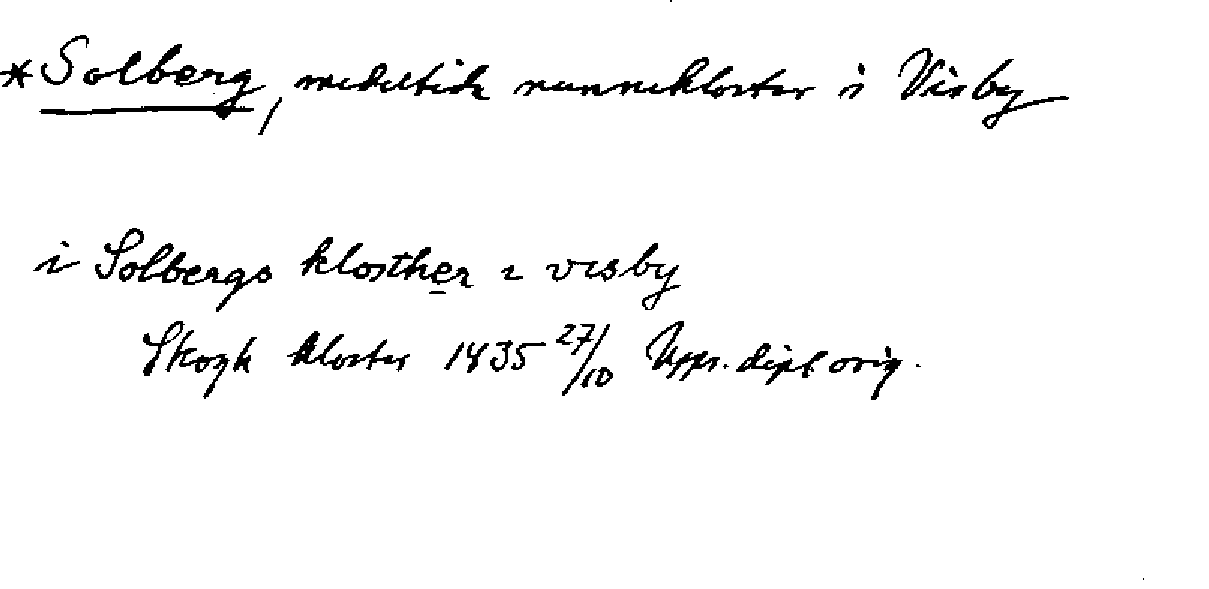 *Solberg, medeltida nunnekloster i Visby
i Solbergs klosther i visby
Skogh kloster 1435 27/10 Upps. dipl orig.